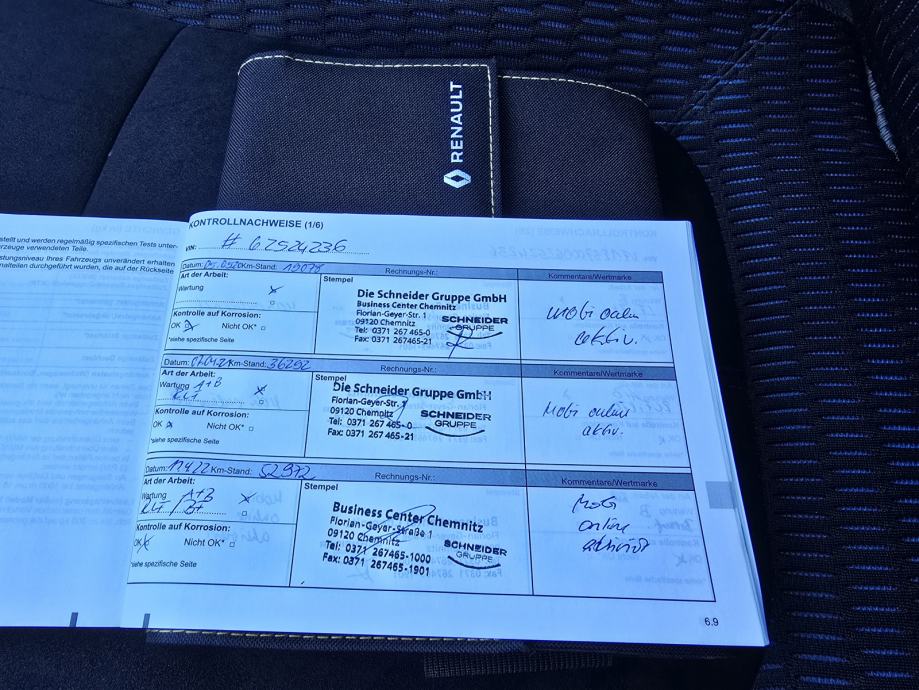 RENAULT
stellt und werden regelmäßig spezifischen Tests unter-
rzeuge verwendeten Teile.
stungsniveau Ihres Fahrzeugs unverändert erhalten
nalteilen durchgeführt wurden, die auf der Rückseite
KONTROLLNACHWEISE (1/6)
VIN: # 62524236
Datum: Km-Stand: 19078 Rechnungs-Nr.: Kommentare/Wertmarke
Art der Arbeit: Stempel
Wartung
Kontrolle auf Korrosion:
OK Nicht OK*
*siehe spezifische Seite
Die Schneider Gruppe GmbH
Business Center Chemnitz
Florian-Geyer-Str. 1
09120 Chemnitz
Tel: 0371 267465-0
Fax: 0371 267465-21
SCHNEIDER
GRUPPE
Mobi online
aktiv.
Datum: Km-Stand: 36292 Rechnungs-Nr.: Kommentare/Wertmarke
Art der Arbeit: Stempel
Wartung A+B
Kontrolle auf Korrosion:
OK Nicht OK*
*siehe spezifische Seite
Die Schneider Gruppe GmbH
Florian-Geyer-Str. 1
09120 Chemnitz
Tel: 0371 267 465-0
Fax: 0371 267 465-21
SCHNEIDER
GRUPPE
Mobi online
aktiv.
Datum: Km-Stand: 52972 Rechnungs-Nr.: Kommentare/Wertmarke
Art der Arbeit: Stempel
Wartung A+B
Kontrolle auf Korrosion:
OK Nicht OK*
*siehe spezifische Seite
Business Center Chemnitz
Florian-Geyer-Straße 1
09120 Chemnitz
Tel: 0371 267465-1000
Fax: 0371 267465-1901
SCHNEIDER
GRUPPE
Mobi
online
aktiviert
6.9